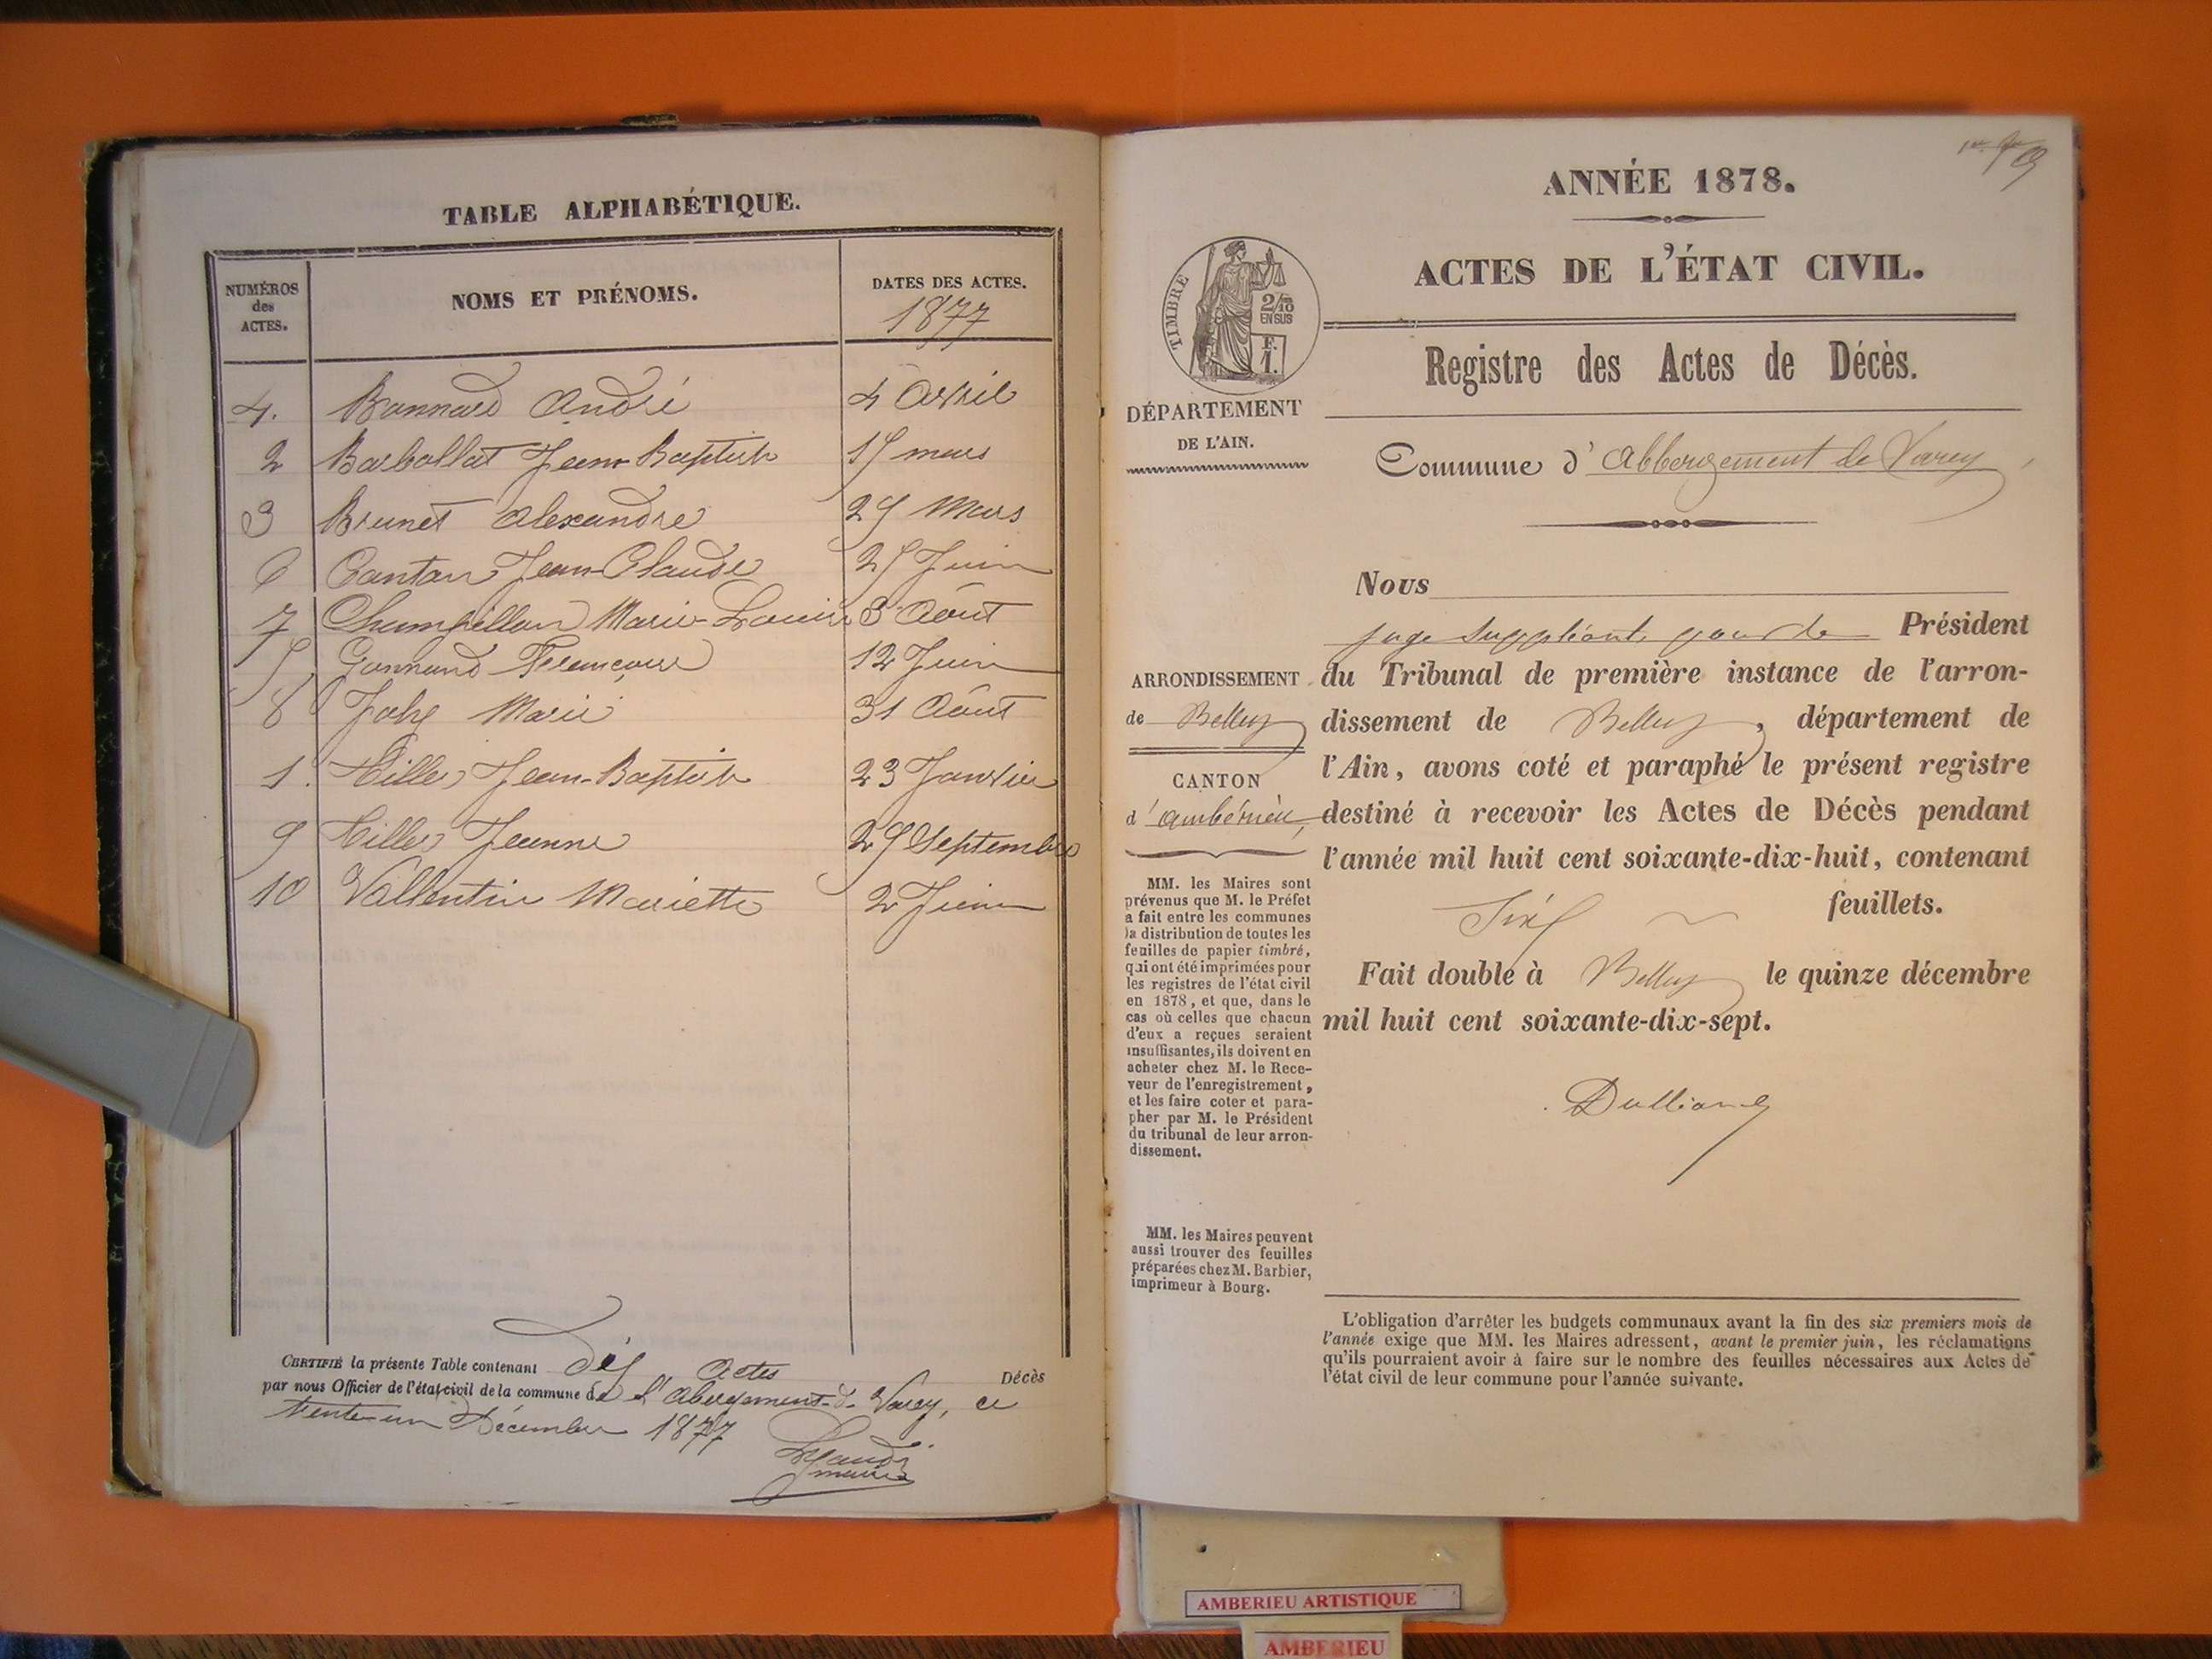 TABLE ALPHABÉTIQUE.
NUMÉROS
des
ACTES.
NOMS ET PRÉNOMS.
DATES DES ACTES.
1877
4. Bonnard André 4 Avril
2 Barbollat Jean-Baptiste 15 mars
3 Brunet Alexandre 25 Mars
6 Cantan Jean-Claude 25 Juin
7 Champillon Marie-Louise 3 Août
5 Gonnand Françoise 12 Juin
8 Joly Marie 31 Août
1. Jean-Baptiste 23 Janvier
9 Jeanne 25 Septembre
10 Vallentin Mariette 2 Juin
CERTIFIÉ la présente Table contenant dix Actes Décès
par nous Officier de l'état-civil de la commune de l'Abergement-d-Varey, ce
trente-un Décembre 1877
maire
ANNÉE 1878.
ACTES DE L'ÉTAT CIVIL.
TIMBRE
2/10
EN SUS
F.
1.
Registre des Actes de Décès.
DÉPARTEMENT
DE L'AIN.
Commune d'Abbergement de Varey
Nous
juge suppléant, pour le Président
du Tribunal de première instance de l'arron-
dissement de Belley, département de
l'Ain, avons coté et paraphé le présent registre
destiné à recevoir les Actes de Décès pendant
l'année mil huit cent soixante-dix-huit, contenant
Six feuillets.
Fait double à Belley le quinze décembre
mil huit cent soixante-dix-sept.
ARRONDISSEMENT
de Belley
CANTON
d'Ambérieu,
MM. les Maires sont
prévenus que M. le Préfet
a fait entre les communes
la distribution de toutes les
feuilles de papier timbré,
qui ont été imprimées pour
les registres de l'état civil
en 1878, et que, dans le
cas où celles que chacun
d'eux a reçues seraient
insuffisantes, ils doivent en
acheter chez M. le Rece-
veur de l'enregistrement,
et les faire coter et para-
pher par M. le Président
du tribunal de leur arron-
dissement.
MM. les Maires peuvent
aussi trouver des feuilles
préparées chez M. Barbier,
imprimeur à Bourg.
L'obligation d'arrêter les budgets communaux avant la fin des six premiers mois de
l'année exige que MM. les Maires adressent, avant le premier juin, les réclamations
qu'ils pourraient avoir à faire sur le nombre des feuilles nécessaires aux Actes de
l'état civil de leur commune pour l'année suivante.
AMBERIEU ARTISTIQUE
AMBERIEU